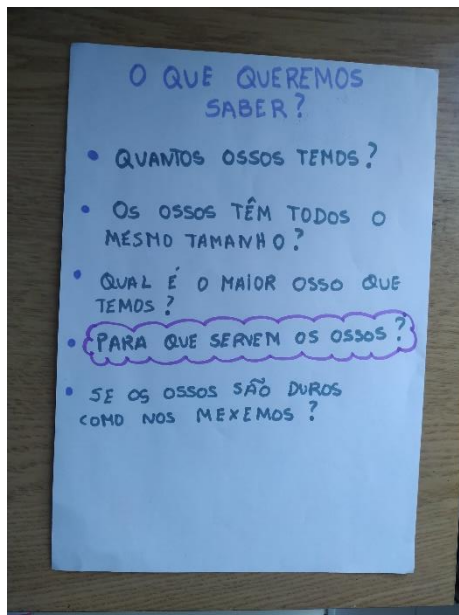 O QUE QUEREMOS
SABER?
• QUANTOS OSSOS TEMOS?
• OS OSSOS TÊM TODOS O
MESMO TAMANHO?
• QUAL É O MAIOR OSSO QUE
TEMOS?
• PARA QUE SERVEM OS OSSOS?
• SE OS OSSOS SÃO DUROS
COMO NOS MEXEMOS?